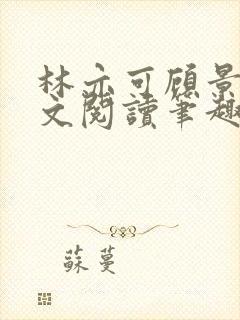 林亦可顾景
文阅讀筆趣
蘇蔓